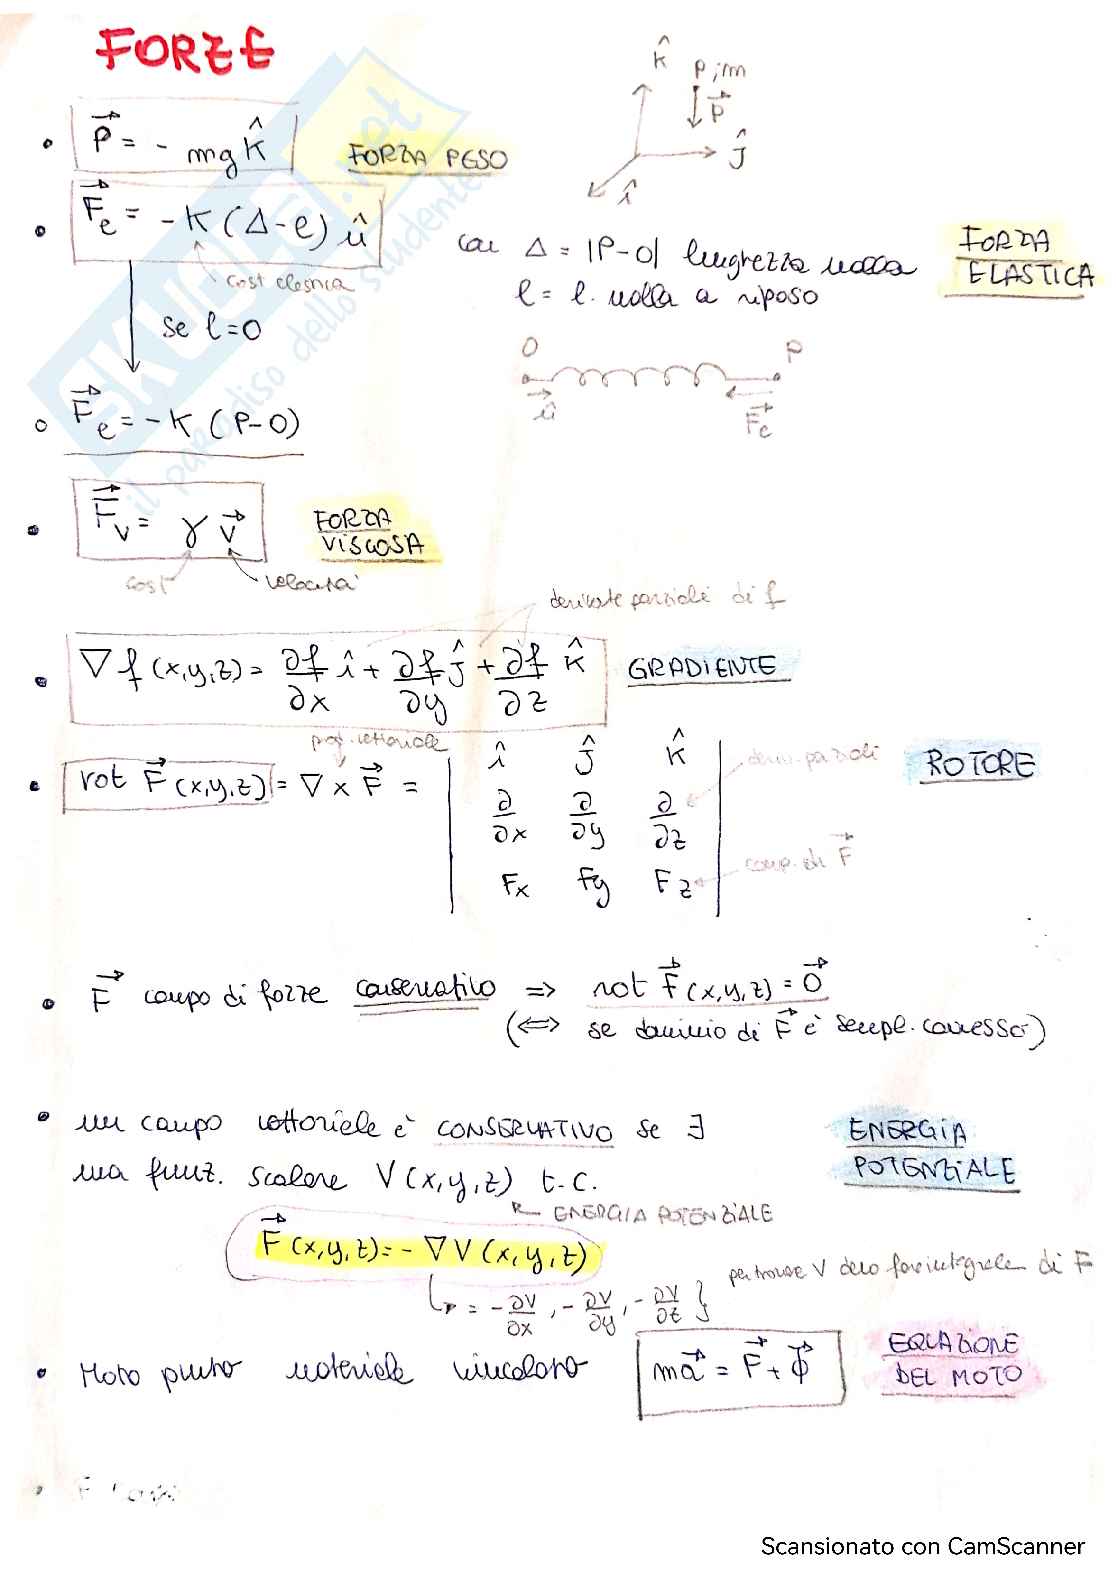 FORZE
k̂
P, m
P⃗
ĵ
î
• P⃗ = - mg k̂
FORZA PESO
• F⃗e = -K (Δ-l) û
cost elastica
con Δ = |P-O| lunghezza molla
l = l. molla a riposo
FORZA
ELASTICA
se l=0
O
P
û
F⃗e
○ F⃗e = -K (P-O)
• F⃗v = γ v⃗
FORZA
VISCOSA
cost
velocità
derivate parziali di f
• ∇f (x,y,z) = ∂f/∂x î + ∂f/∂y ĵ + ∂f/∂z k̂
GRADIENTE
prod. vettoriale
• rot F⃗ (x,y,z) = ∇ x F⃗ =
î ĵ k̂
∂/∂x ∂/∂y ∂/∂z
Fx Fy Fz
deriv. parziali
comp. di F⃗
ROTORE
• F⃗ campo di forze conservativo => rot F⃗ (x,y,z) = 0⃗
(<=> se dominio di F⃗ è sempl. connesso)
• un campo vettoriale è CONSERVATIVO se ∃
una funz. scalare V (x,y,z) t.c.
ENERGIA
POTENZIALE
ENERGIA POTENZIALE
F⃗ (x,y,z) = - ∇V (x,y,z)
= -∂V/∂x , -∂V/∂y , -∂V/∂z }
per trovare V devo fare integrale di F
• Moto punto materiale vincolato
ma⃗ = F⃗ + Φ⃗
EQUAZIONE
DEL MOTO
SKUOLA.net
il paradiso dello studente
Scansionato con CamScanner